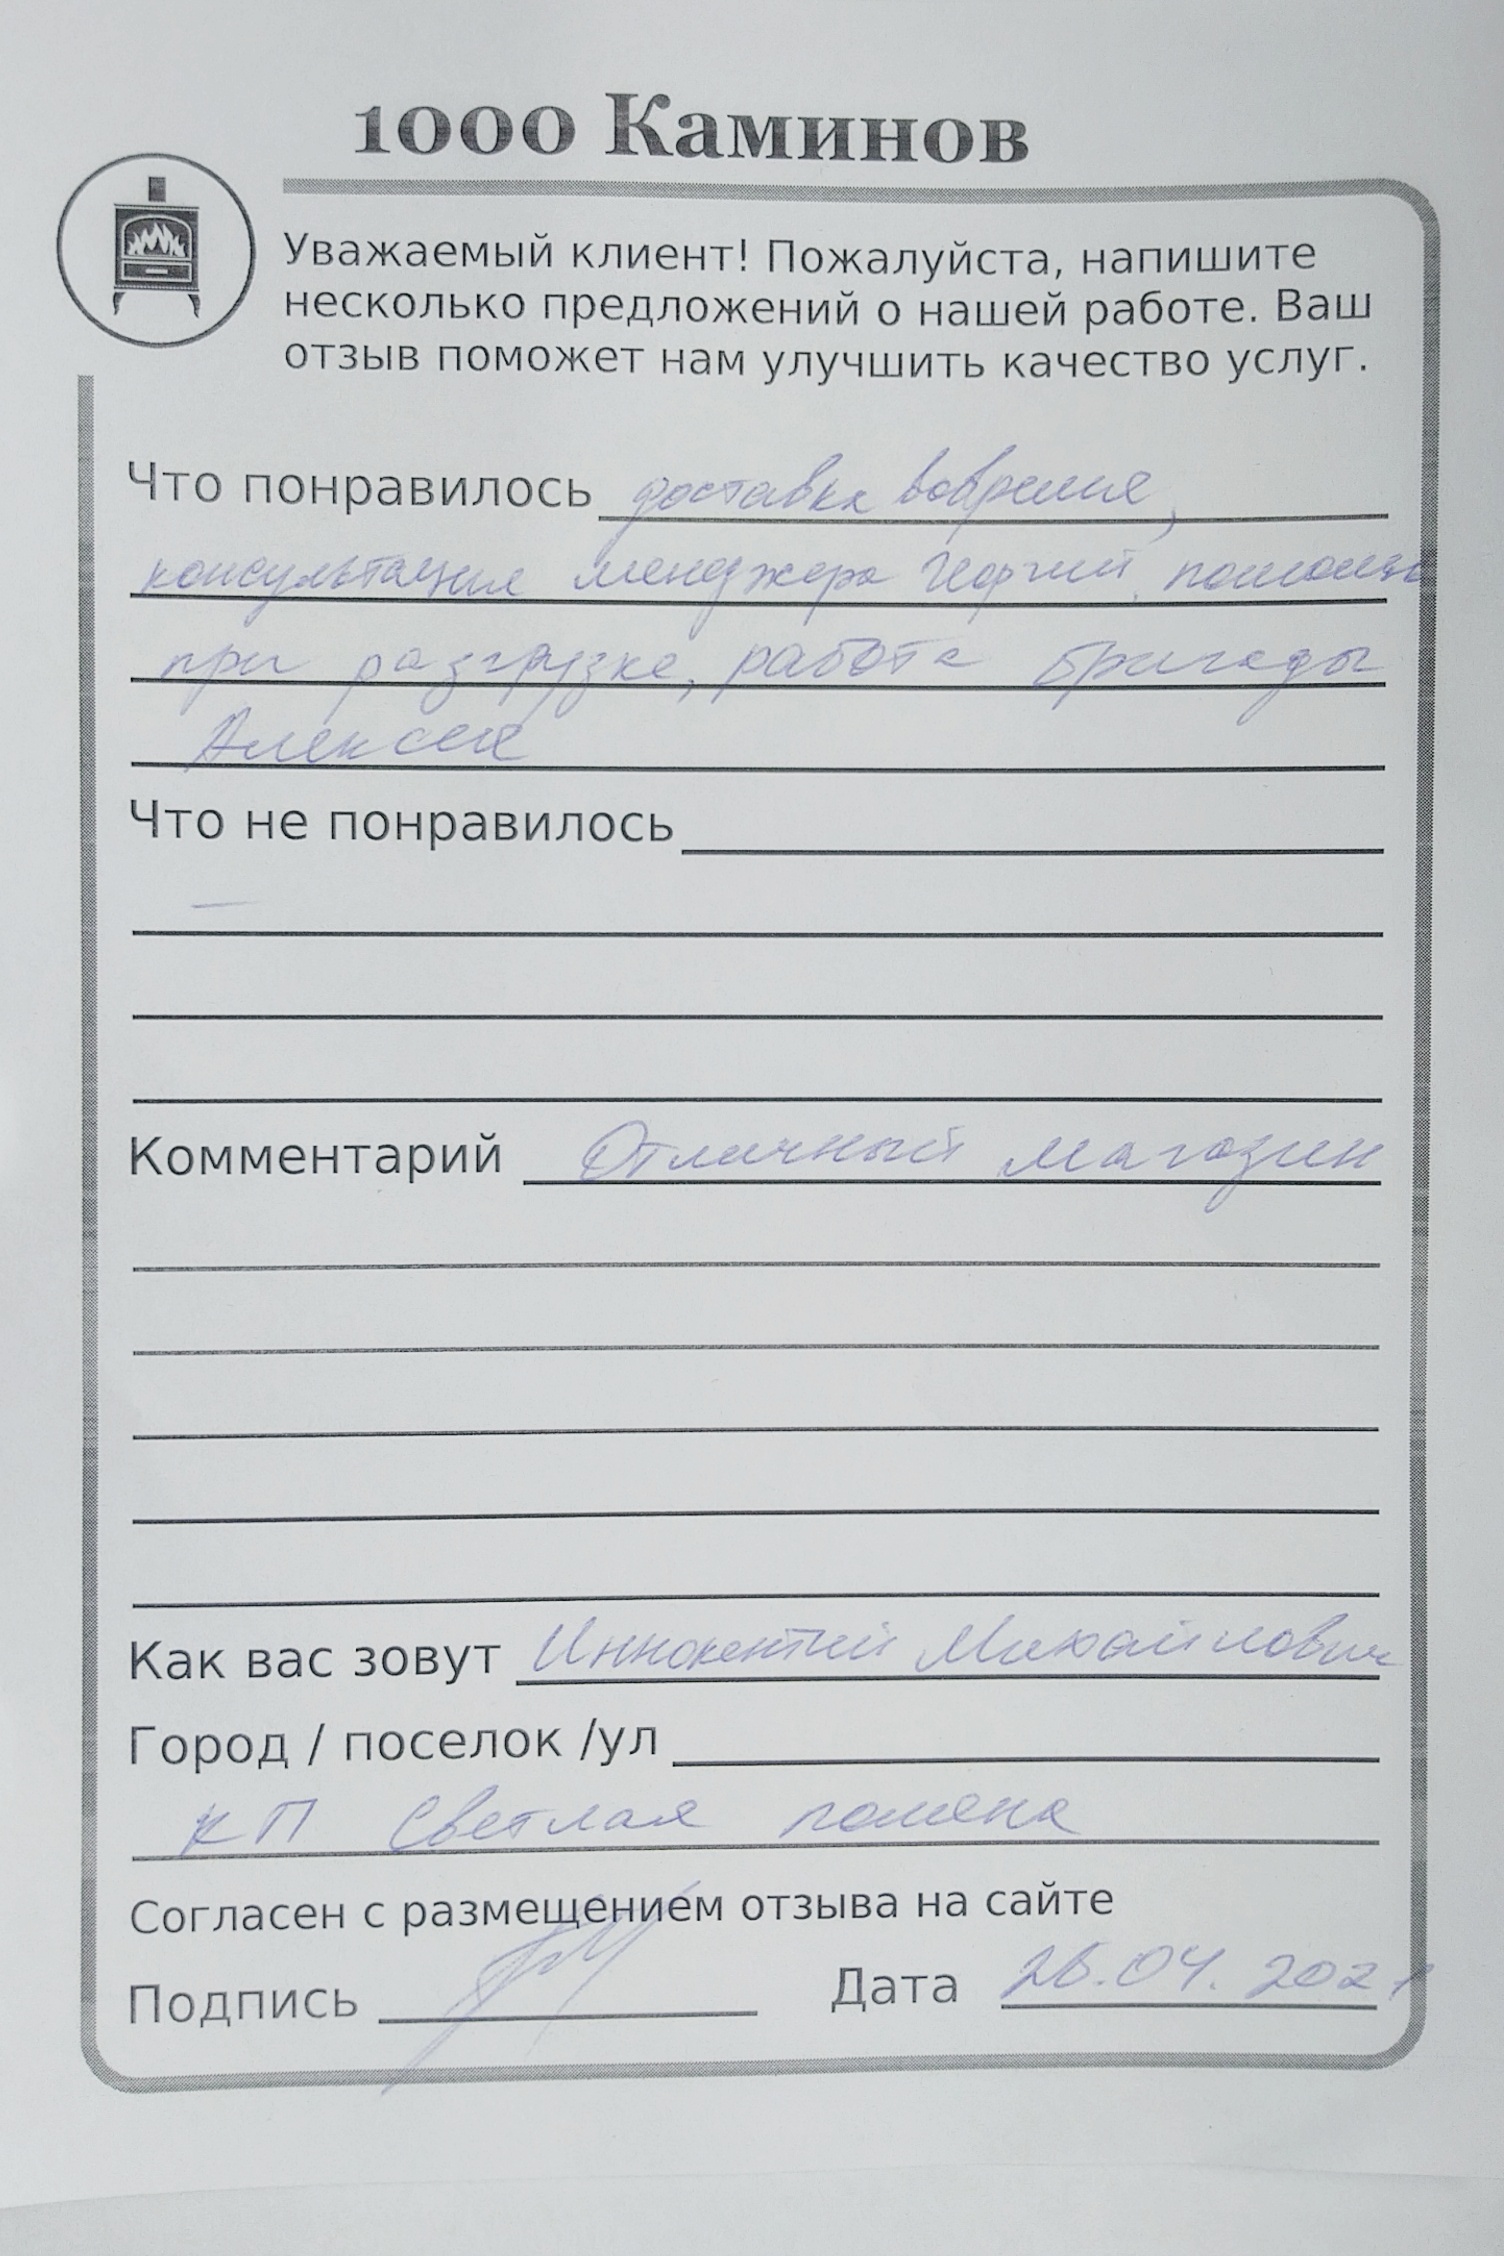 1000 Каминов
Уважаемый клиент! Пожалуйста, напишите
несколько предложений о нашей работе. Ваш
отзыв поможет нам улучшить качество услуг.
Что понравилось доставка вовремя,
консультация менеджера Георгий, помощь
при разгрузке, работа бригады
Алексея
Что не понравилось
—
Комментарий Отличный магазин
Как вас зовут Иннокентий Михайлович
Город / поселок /ул
КП Светлая поляна
Согласен с размещением отзыва на сайте
Подпись Дата 26.04.2021